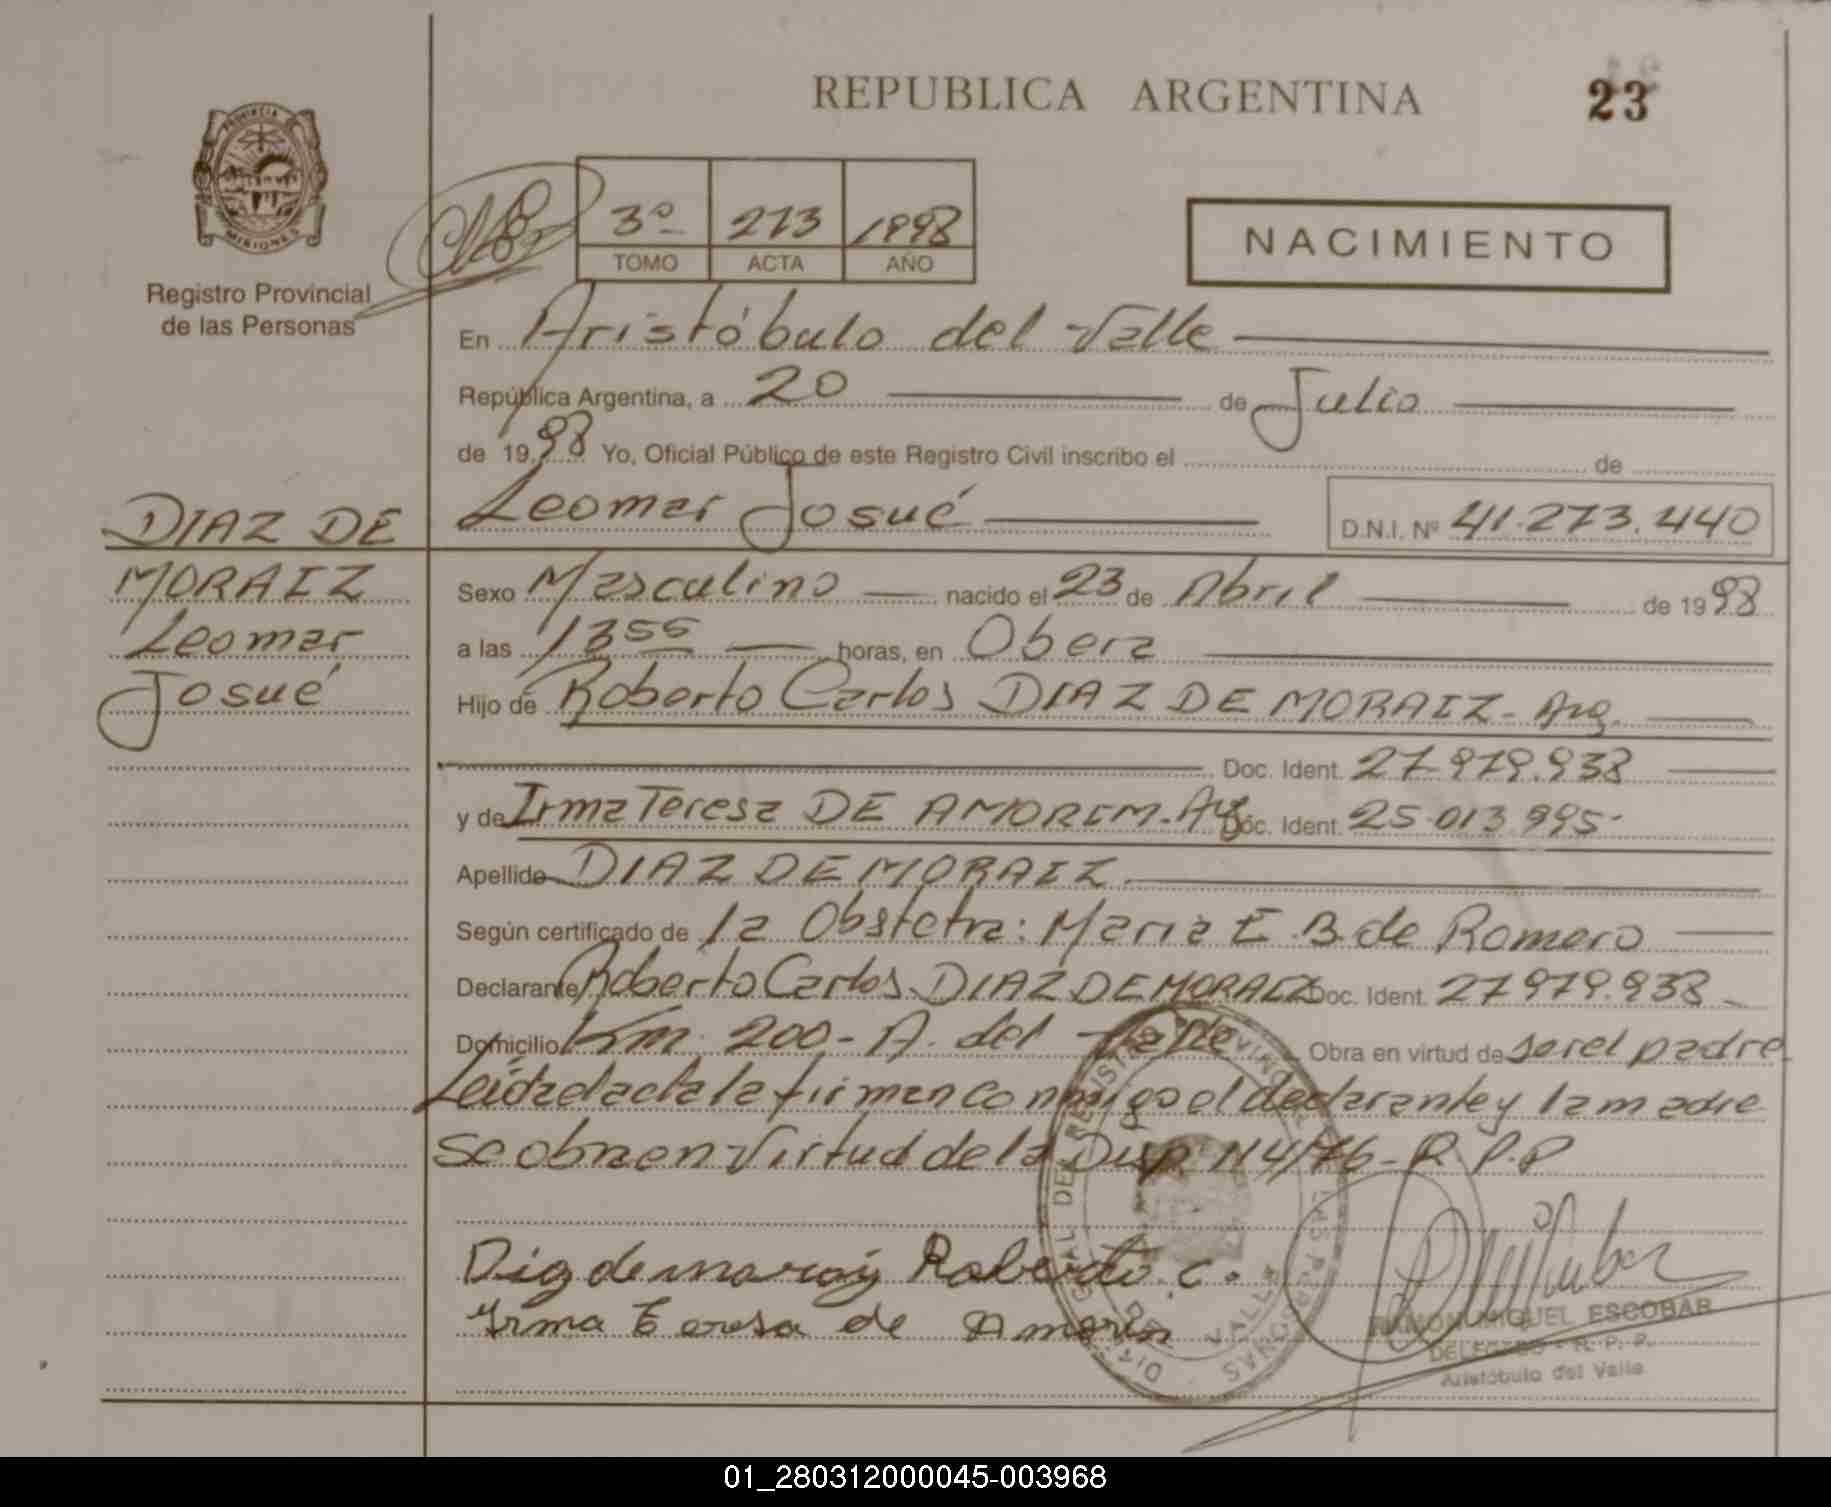 REPUBLICA ARGENTINA
23
PROVINCIA DE
MISIONES
Registro Provincial
de las Personas
3º 273 1998
TOMO ACTA AÑO
NACIMIENTO
En Aristóbulo del Valle
República Argentina, a 20 de Julio
de 1998 Yo, Oficial Público de este Registro Civil inscribo el de
DIAZ DE
MORAIZ
Leomar
Josué
Leomar Josué D.N.I. Nº 41.273.440
Sexo Masculino nacido el 23 de Abril de 1998
a las 13 55 horas, en Obera
Hijo de Roberto Carlos DIAZ DE MORAIZ - Arg.
Doc. Ident. 27.979.938
y de Irma Teresa DE AMOREM - Arg. Doc. Ident. 25.013.995
Apellido DIAZ DE MORAIZ
Según certificado de la Obstetra: Maria E. B. de Romero
Declarante Roberto Carlos DIAZ DE MORAIZ Doc. Ident. 27.979.938
Domicilio Km. 200 - A. del Valle Obra en virtud de ser el padre
Leida el acta la firman conmigo el declarante y la madre
se obra en virtud de la Disp. 114/76 - R.P.P
Diaz de moraiz Roberto. C.
Irma Teresa de Amorin
RAMON MIGUEL ESCOBAR
DELEGADO - R. P. P.
Aristóbulo del Valle
01_280312000045-003968